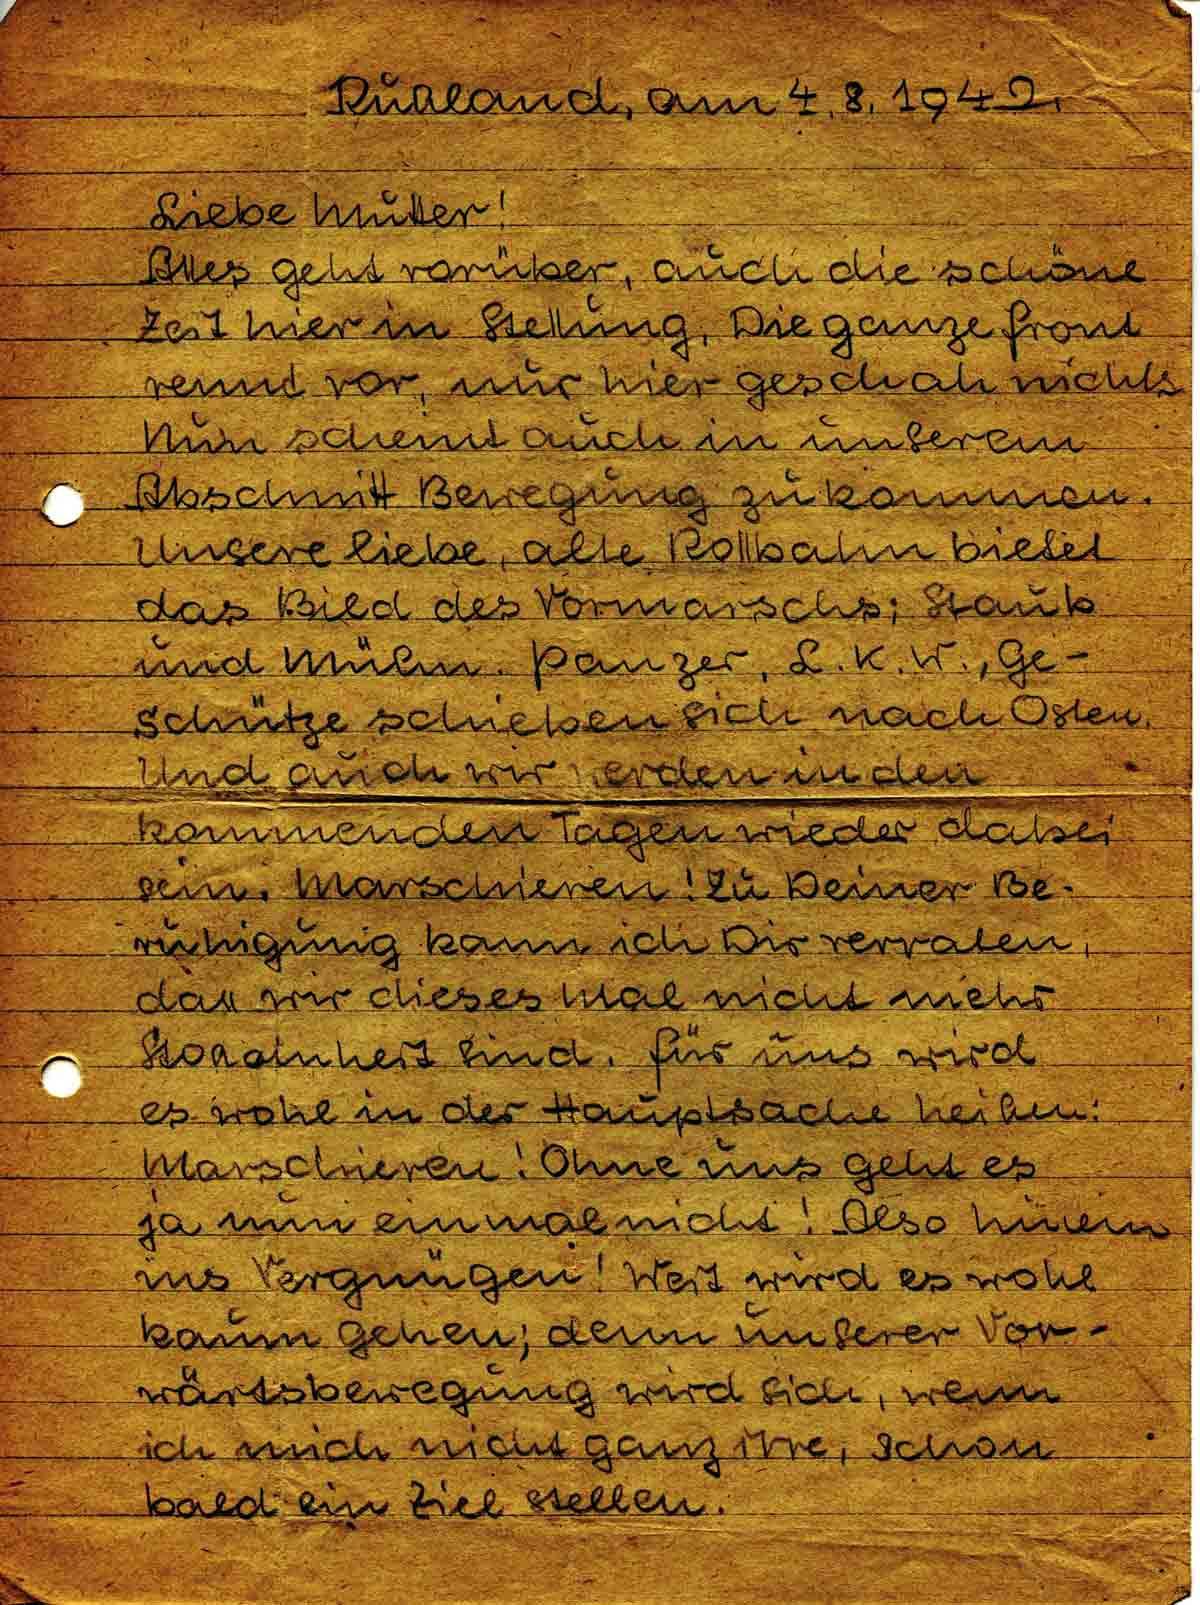 Rußland, am 4.8.1942.
Liebe Mutter!
Alles geht vorüber, auch die schöne
Zeit hier in Stellung. Die ganze Front
rennt vor, nur hier geschah nichts
Nun scheint auch in unserem
Abschnitt Bewegung zu kommen.
Unsere liebe, alte Rollbahn bietet
das Bild des Vormarschs; Staub
und Mulm. Panzer, L.K.W., Ge-
schütze schieben sich nach Osten.
Und auch wir werden in den
kommenden Tagen wieder dabei
sein. Marschieren! Zu Deiner Be-
ruhigung kann ich Dir verraten,
daß wir dieses Mal nicht mehr
Stoßeinheit sind. Für uns wird
es wohl in der Hauptsache heißen:
Marschieren! Ohne uns geht es
ja nun einmal nicht! Also hinein
ins Vergnügen! Weit wird es wohl
kaum gehen; denn unserer Vor-
wärtsbewegung wird sich, wenn
ich mich nicht ganz irre, schon
bald ein Ziel stellen.